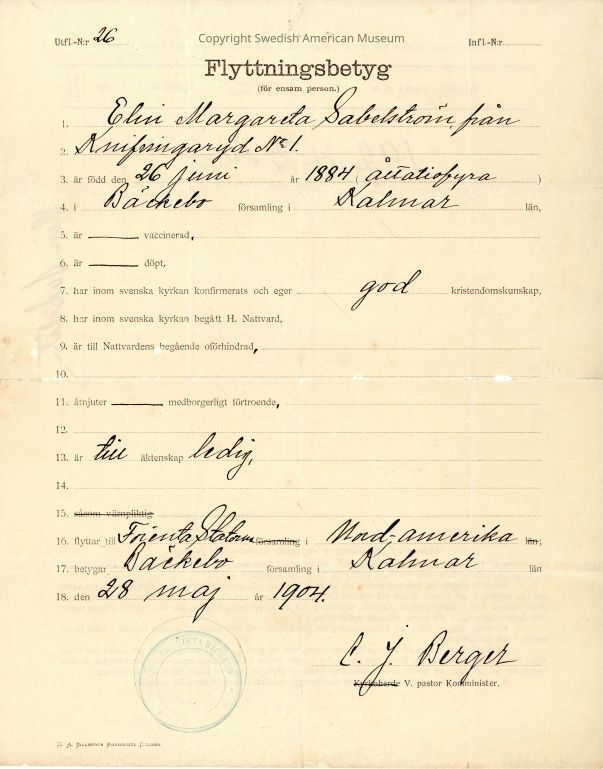 Copyright Swedish American Museum
Utfl.-N:r 26 Infl.-N:r
Flyttningsbetyg
(för ensam person.)
1. Elin Margareta Sabelström, från
2. Knifsingaryd No 1.
3. är född den 26 juni år 1884 (åttatiofyra)
4. i Bäckebo församling i Kalmar län,
5. är vaccinerad,
6. är döpt,
7. har inom svenska kyrkan konfirmerats och eger god kristendomskunskap,
8. har inom svenska kyrkan begått H. Nattvard,
9. är till Nattvardens begående oförhindrad,
10.
11. åtnjuter medborgerligt förtroende,
12.
13. är till äktenskap ledig,
14.
15. såsom vämpliktig
16. flyttar till Förenta Staterna församling i Nord-amerika län;
17. betygar Bäckebo församling i Kalmar län
18. den 28 maj år 1904.
C. J. Berger
Kyrkoherde V. pastor Komminister.